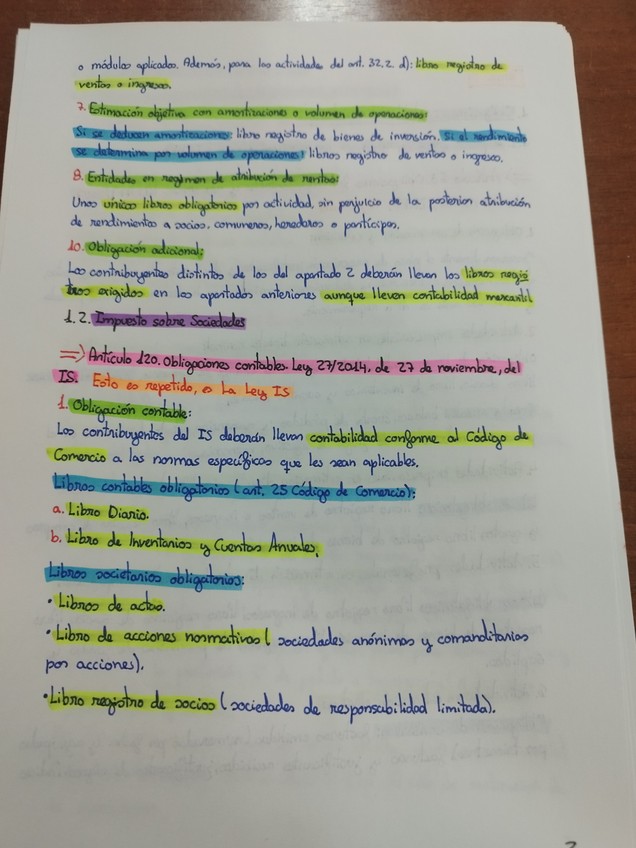 o módulos aplicados. Además, para las actividades del art. 32.2. d): libro registro de
ventas o ingresos.
7. Estimación objetiva con amortizaciones o volumen de operaciones:
Si se deducen amortizaciones: libro registro de bienes de inversión. Si el rendimiento
se determina por volumen de operaciones: libros registro de ventas o ingresos.
8. Entidades en regimen de atribución de rentas:
Unos únicos libros obligatorios por actividad, sin perjuicio de la posterior atribución
de rendimientos a socios, comuneros, herederos o partícipes.
10. Obligación adicional:
Los contribuyentes distintos de los del apartado 2 deberán llevar los libros regis
tros exigidos en los apartados anteriores aunque lleven contabilidad mercantil
1.2. Impuesto sobre Sociedades
=> Artículo 120. Obligaciones contables. Ley 27/2014, de 27 de noviembre, del
IS. Esto es repetido, es La Ley IS
1. Obligación contable:
Los contribuyentes del IS deberán llevar contabilidad conforme al Código de
Comercio a las normas específicas que les sean aplicables.
Libros contables obligatorios (art. 25 Código de Comercio):
a. Libro Diario.
b. Libro de Inventarios y Cuentas Anuales.
Libros societarios obligatorios:
• Libros de actas.
• Libro de acciones normativas ( sociedades anónimas y comanditarias
por acciones).
• Libro registro de socios ( sociedades de responsabilidad limitada).